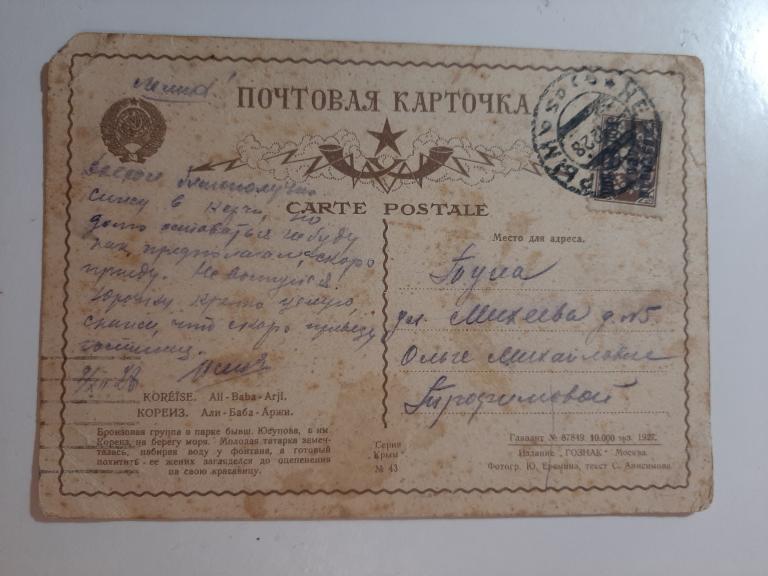 ПОЧТОВАЯ КАРТОЧКА
CARTE POSTALE
КРЫМ
28
сижу в Керчи, но
долго оставаться не буду
как предполагал скоро
приеду. Не волнуйся.
Юрочку крепко целую,
скажи, что скоро привезу
гостинец.
9/XII 28
KORÉÏSE. Ali-Baba-Arji.
КОРЕИЗ. Али-Баба-Аржи.
Бронзовая группа в парке бывш. Юсупова, в им.
Кореиз, на берегу моря. Молодая татарка замеч-
талась, набирая воду у фонтана, а готовый
похитить ее жених загляделся до оцепенения
на свою красавицу.
Серия
Крым
№ 43
Место для адреса.
Тула
ул. Михеева д. №5.
Ольге Михайловне
Трофимовой
Главлит № 87849. 10.000 экз. 1927.
Издание "ГОЗНАК" Москва.
Фотогр. Ю. Еремина, текст С. Анисимова